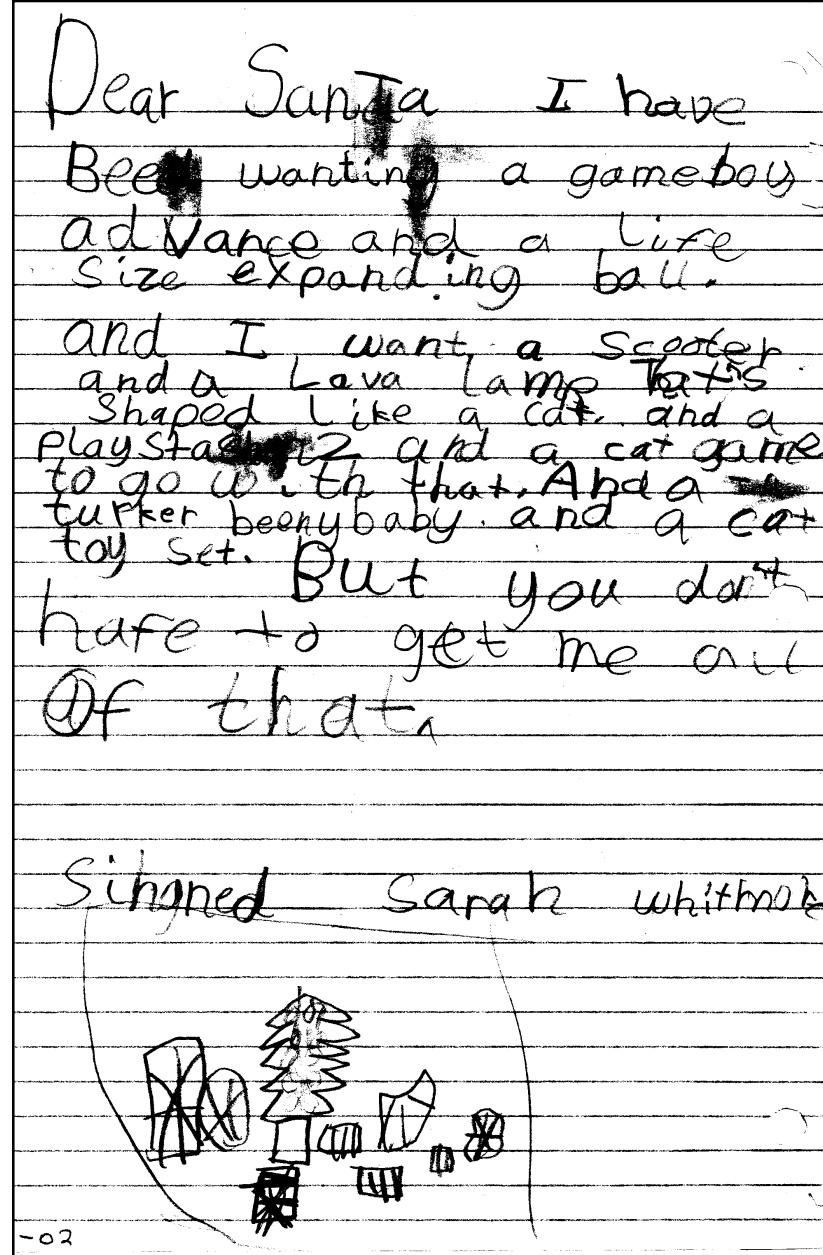 Dear Santa I have
Been wanting a gameboy
advance and a life
size expanding ball.
and I want a scooter
and a Lava lamp that's
shaped like a cat. and a
playstation 2 and a cat game
to go with that. And a
turker beenybaby. and a cat
toy set.
But you don't
hafe to get me all
Of that.
Singned Sarah
-02